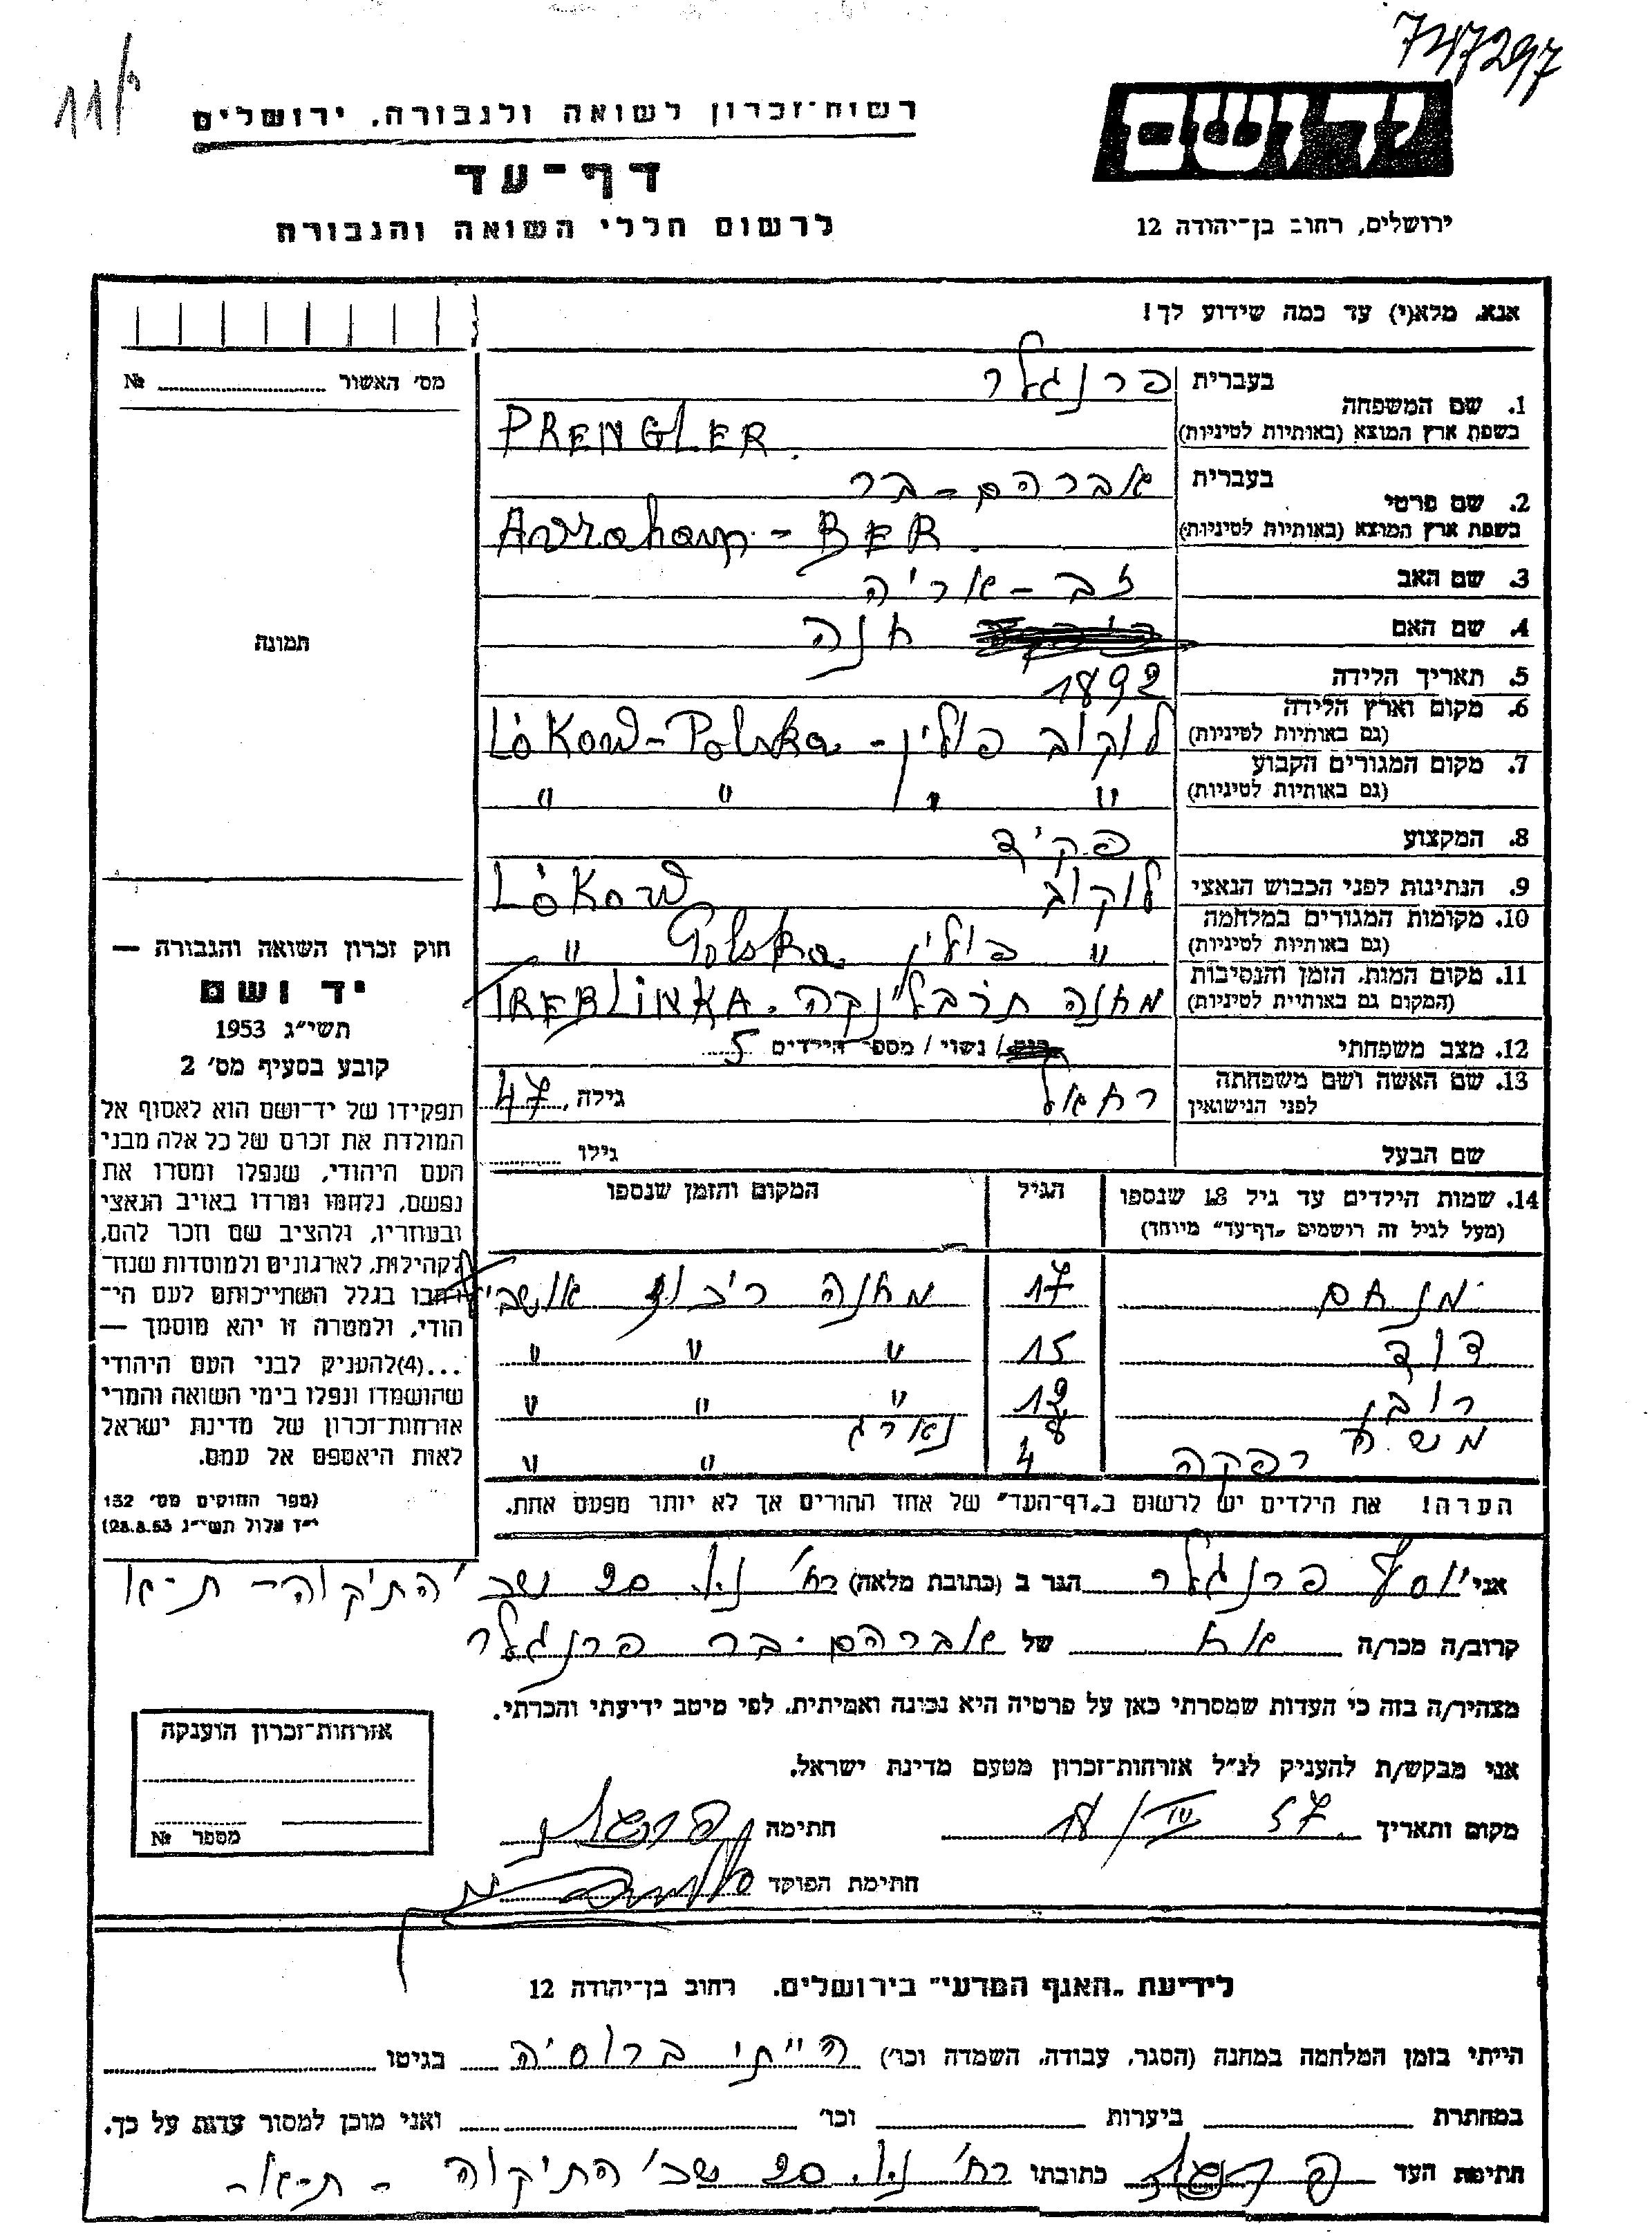 747297
רשות-זכרון לשואה ולגבורה, ירושלים
דף-עד
לרשום חללי השואה והגבורה
ידושם
ירושלים, רחוב בן-יהודה 12
אנא, מלא(י) עד כמה שידוע לך!
מס' האשור № 
1. שם המשפחה
בעברית פרנגלר
בשפת ארץ המוצא (באותיות לטיניות) PRENGLER
2. שם פרטי
בעברית אברהם-בר
בשפת ארץ המוצא (באותיות לטיניות) Avraham - BER
3. שם האב זב-אריה
4. שם האם חנה
5. תאריך הלידה 1892
6. מקום וארץ הלידה
(גם באותיות לטיניות) לוקוב פולין - Lókow - Polska
7. מקום המגורים הקבוע
(גם באותיות לטיניות) " " " "
8. המקצוע פקיד
9. הנתינות לפני הכבוש הנאצי לוקוב Lókow
10. מקומות המגורים במלחמה
(גם באותיות לטיניות) " פולין Polska "
11. מקום המות, הזמן והנסיבות
(המקום גם באותיות לטיניות) מחנה תרבלינקה. TREBLINKA
12. מצב משפחתי / נשוי / מספר הילדים 5
13. שם האשה ושם משפחתה
לפני הנישואין רחאל גילה 47
שם הבעל גילו
14. שמות הילדים עד גיל 18 שנספו
(מעל לגיל זה רושמים "דף-עד" מיוחד)
הגיל
המקום והזמן שנספו
מנחם 17 מחנה ריכוז
דוד 15 " " "
רובן 12 " " "
משה 8
רפקה 4 " "
הערה! את הילדים יש לרשום ב"דף-העד" של אחד ההורים אך לא יותר מפעם אחת.
תמונה
חוק זכרון השואה והגבורה —
יד ושם
תשי"ג 1953
קובע בסעיף מס' 2
תפקידו של יד-ושם הוא לאסוף אל
המולדת את זכרם של כל אלה מבני
העם היהודי, שנפלו ומסרו את
נפשם, נלחמו ומרדו באויב הנאצי
ובעוזריו, ולהציב שם וזכר להם,
לקהילות, לארגונים ולמוסדות שנח-
רבו בגלל השתייכותם לעם הי-
הודי, ולמטרה זו יהא מוסמך —
...(4)להעניק לבני העם היהודי
שהושמדו ונפלו בימי השואה והמרי
אזרחות-זכרון של מדינת ישראל
לאות היאספם אל עמם.
(ספר החוקים מס' 132
י"ז אלול תשי"ג 28.8.53)
אני יוסף פרנגלר הגר ב (כתובת מלאה) רח' נ.ו. 20 שכ' התיקוה - ת-א
קרוב/ה מכר/ה אח של אברהם-בר פרנגלר
מצהיר/ה בזה כי העדות שמסרתי כאן על פרטיה היא נכונה ואמיתית, לפי מיטב ידיעתי והכרתי.
אני מבקש/ת להעניק לנ"ל אזרחות-זכרון מטעם מדינת ישראל.
מקום ותאריך 18/IV 57 חתימה
חתימת הפוקד
אזרחות-זכרון הוענקה
מספר №
לידיעת "האגף המדעי" בירושלים, רחוב בן-יהודה 12
הייתי בזמן המלחמה במחנה (הסגר, עבודה, השמדה וכו') הייתי ברוסיה בגיטו
במחתרת ביערות וכו' ואני מוכן למסור עדות על כך.
חתימת העד כתובתו רח' נ.ו. 20 שכ' התיקוה - ת-א-